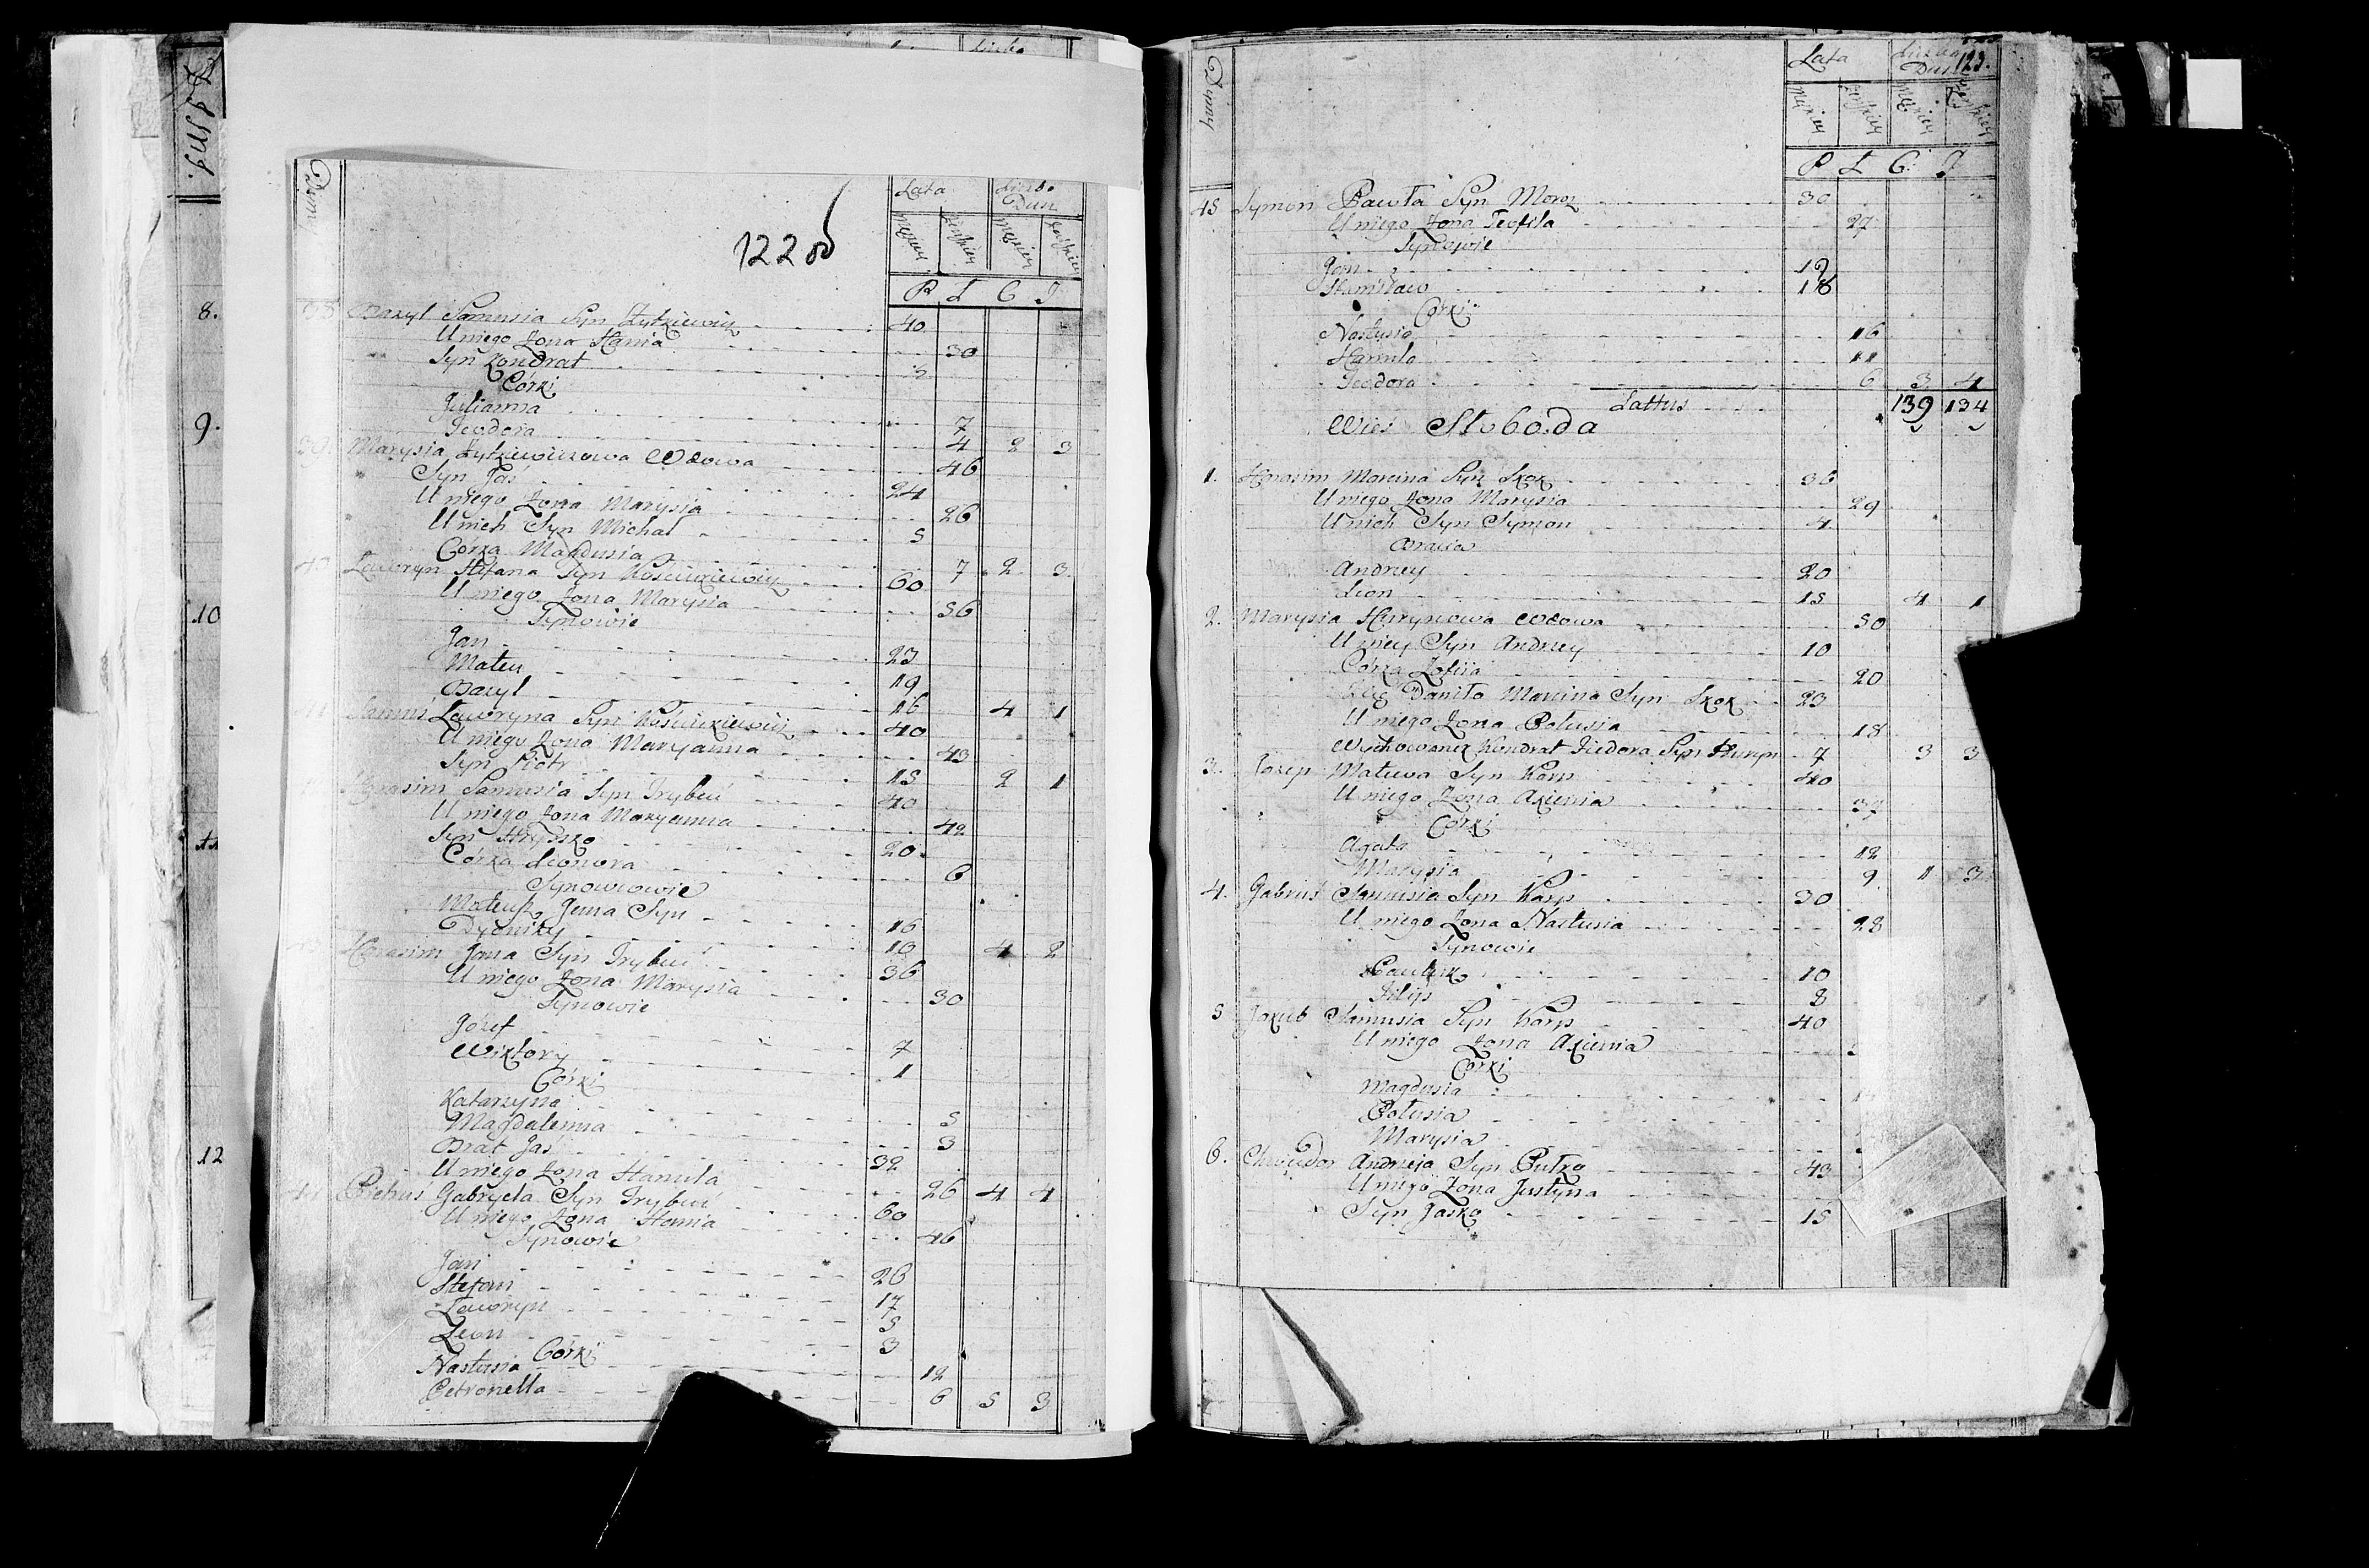 8.
9.
10
12
Dymy
Lata
Liczba Dusz
Męzkiey Żeńskiey Męzkiey Żeńskiey
P L C J
122 об
Bazyl Samusia Syn Żytkiewicz 40
U niego Żona Hania 30
Syn Kondrat 2
Córki
Julianna 7
Teodora 4 2 3
39. Marysia Żytkiewiczowa Wdowa 46
Syn Jaś 24
U niego Żona Marysia 26
U nich Syn Michał 5
Córka Magdusia 7 2 3
Ławryn Stefana Syn Kościukiewicz 60
U niego Żona Marysia 56
Synowie
Jan 23
Mateu 19
Bazyl 16 4 1
Samuś Ławryna Syn Kościukiewicz 40
U niego Żona Maryanna 43
Syn Piotr 15 2 1
Harasim Samusia Syn Trybuć 40
U niego Żona Maryanna 42
Syn Hryszko 20
Córka Leonora 6
Synowcowie
Mateusz Jana Syn 16
Dyonizy 10 4 2
Harasim Jana Syn Trybuć 36
U niego Żona Marysia 30
Synowie
Józef 7
Wiktory 1
Córki
Katarzyna 5
Magdalenna 3
Brat Jaś 32
U niego Żona Hanula 26 4 4
Pietruś Gabryela Syn Trybuć 60
U niego Żona Hania 46
Synowie
Jan 26
Stefan 17
Ławryn 5
Leon 3
Córki
Nastusia 12
Petronella 6 5 3
Dymy
Lata
Liczba Dusz
123.
Męzkiey Żeńskiey Męzkiey Żeńskiey
P L C J
45 Symon Pawła Syn Moroz 30
U niego Żona Teofila 27
Synowie
Jan 19
Stanisław 18
Córki
Nastusia 16
Hanula 11
Teodora 6 3 4
Lattus 139 134
Wieś Słoboda
1. Harasim Marcina Syn Skok 36
U niego Żona Marysia 29
U nich Syn Symon 4
Bracia
Andrzey 20
Leon 15 4 1
2. Marysia Hurynowa Wdowa 50
U niey Syn Andrzey 10
Córka Zofiia 20
Daniło Marcina Syn Skok 23
U niego Żona Połusia 18
Wychowaniec Kondrat Fiedora Syn Huryn 7 3 3
3. Jozep Mateusza Syn Karp 40
U niego Żona Axienia 37
Córki
Agata 12
Marysia 9 1 3
4. Gabruś Samusia Syn Karp 30
U niego Żona Nastusia 28
Synowie
Pawluk 10
Filip 8
5 Jakub Samusia Syn Karp 40
U niego Żona Axienia
Córki
Magdusia
Połusia
Marysia
6. Chwiedor Andrzeia Syn Putko 43
U niego Żona Justyna
Syn Jasko 15